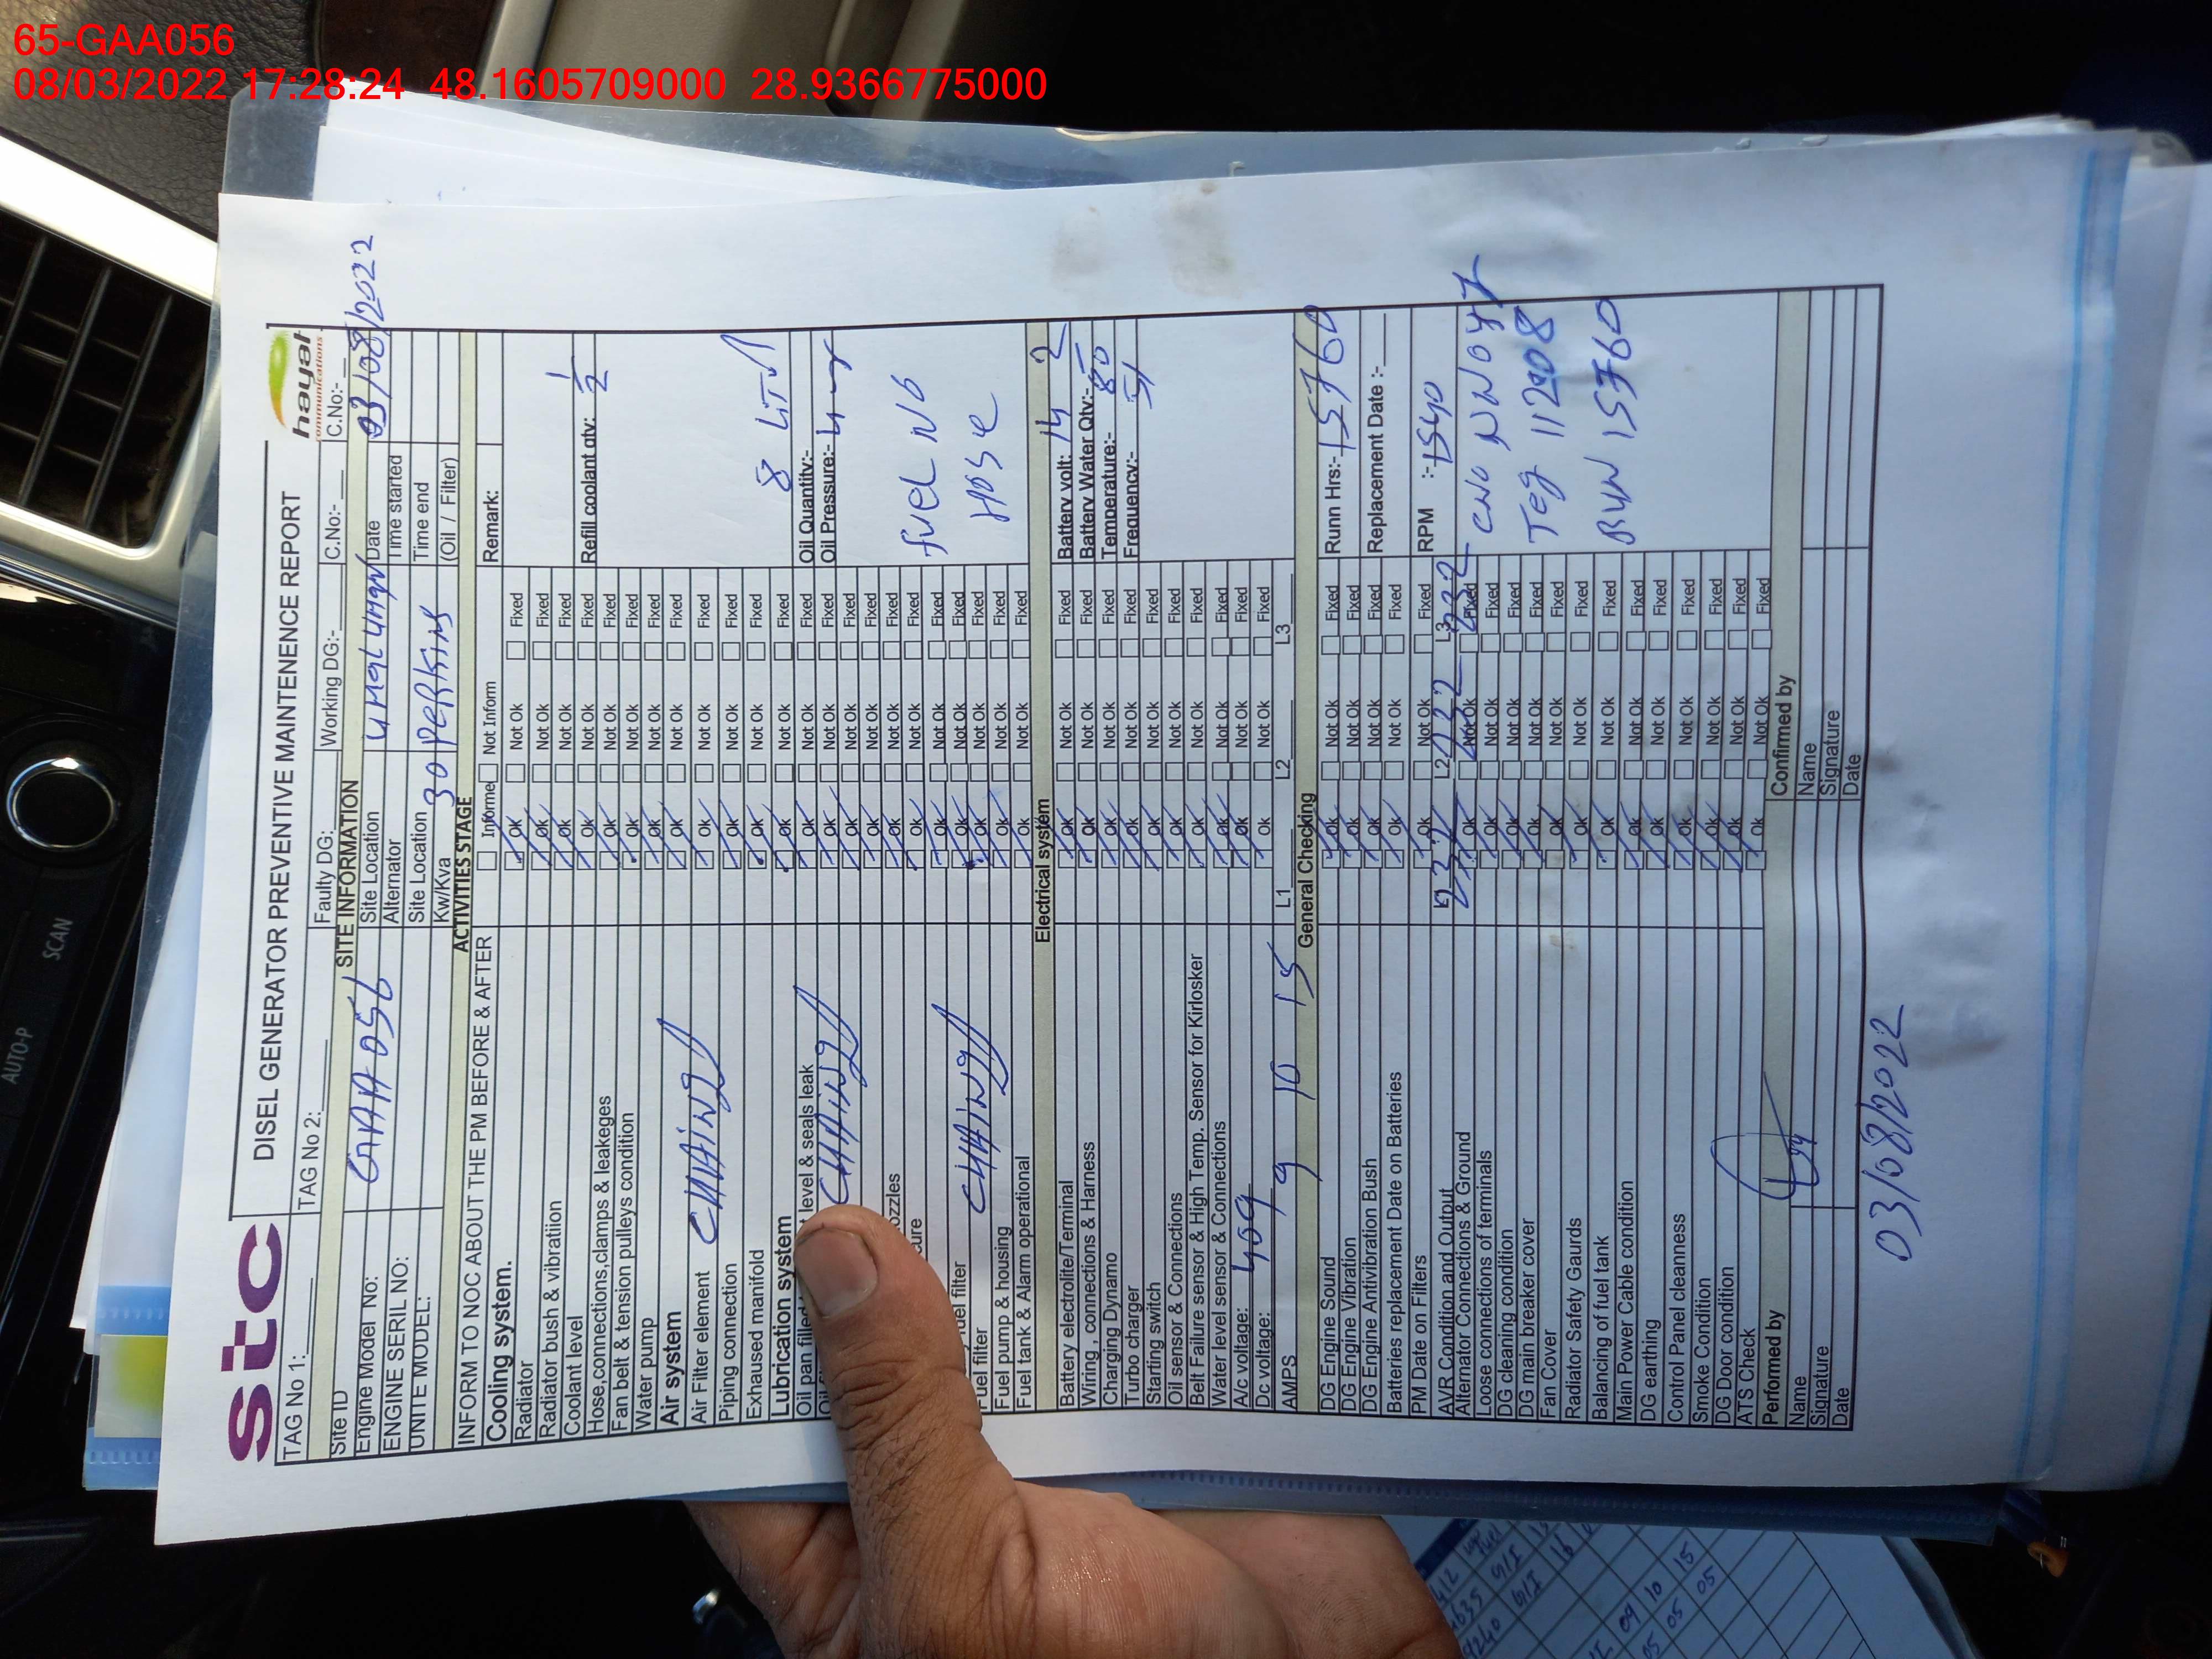 65-GAA056
08/03/2022 17:28:24 48.1605709000 28.9366775000
AUTO-P
SCAN
stc
DISEL GENERATOR PREVENTIVE MAINTENENCE REPORT
hayat
communications
TAG No 1:
TAG No 2:
Faulty DG:
Working DG:-
C.No:-
C.No:-
SITE INFORMATION
Site ID GAAA 056
Site Location
Date 03/08/2022
Engine Model No:
Alternator
Time started
ENGINE SERIL NO:
Site Location
Time end
UNITE MODEL:
Kw/Kva 30 PERKINS
(Oil / Filter)
ACTIVITIES STAGE
INFORM TO NOC ABOUT THE PM BEFORE & AFTER
Informe Not Inform
Remark:
Cooling system.
Radiator Ok Not Ok Fixed
Radiator bush & vibratiion Ok Not Ok Fixed
Coolant level Ok Not Ok Fixed
Refill coolant qty: 1/2
Hose,connections,clamps & leakeges Ok Not Ok Fixed
Fan belt & tension pulleys condition Ok Not Ok Fixed
Water pump Ok Not Ok Fixed
Air system Ok Not Ok Fixed
Air Filter element Ok Not Ok Fixed
Piping connection Ok Not Ok Fixed
Exhaused manifold Ok Not Ok Fixed
8 LiTr
Lubrication system Ok Not Ok Fixed
Oil pan filled level & seals leak Ok Not Ok Fixed
Oil Quantity:-
Oil Pressure:-
FUEL NO
HOSE
fuel filter
Fuel filter Ok Not Ok Fixed
Fuel pump & housing Ok Not Ok Fixed
Fuel tank & Alarm operational Ok Not Ok Fixed
Electrical system
Battery electrolite/Terminal Ok Not Ok Fixed
Battery volt: 14 2
Wiring , connections & Harness Ok Not Ok Fixed
Battery Water Qty:-
Charging Dynamo Ok Not Ok Fixed
Temperature:- 85
Turbo charger Ok Not Ok Fixed
Frequency:- 51
Starting switch Ok Not Ok Fixed
Oil sensor & Connections Ok Not Ok Fixed
Belt Failure sensor & High Temp. Sensor for Kirlosker Ok Not Ok Fixed
Water level sensor & Connections Ok Not Ok Fixed
A/c voltage: 409 Ok Not Ok Fixed
Dc voltage: Ok Not Ok Fixed
AMPS 9 10 15
L1 L2 L3
General Checking
DG Engine Sound Ok Not Ok Fixed
Runn Hrs:- 15760
DG Engine Vibration Ok Not Ok Fixed
DG Engine Antivibration Bush Ok Not Ok Fixed
Replacement Date :-
Batteries replacement Date on Batteries Ok Not Ok Fixed
PM Date on Filters Ok Not Ok Fixed
RPM :- 1540
AVR Condition and Output L1 232 L2 232 L3 232
Alternator Connections & Ground Ok Not Ok Fixed
Loose connections of terminals Ok Not Ok Fixed
DG cleaning condition Ok Not Ok Fixed
DG main breaker cover Ok Not Ok Fixed
Teg 11208
Fan Cover Ok Not Ok Fixed
Radiator Safety Gaurds Ok Not Ok Fixed
Balancing of fuel tank Ok Not Ok Fixed
RUN 15760
Main Power Cable condition Ok Not Ok Fixed
DG earthing Ok Not Ok Fixed
Control Panel cleanness Ok Not Ok Fixed
Smoke Condition Ok Not Ok Fixed
DG Door condition Ok Not Ok Fixed
ATS Check Ok Not Ok Fixed
Performed by
Confirmed by
Name
Name
Signature
Signature
Date
Date
03/08/2022